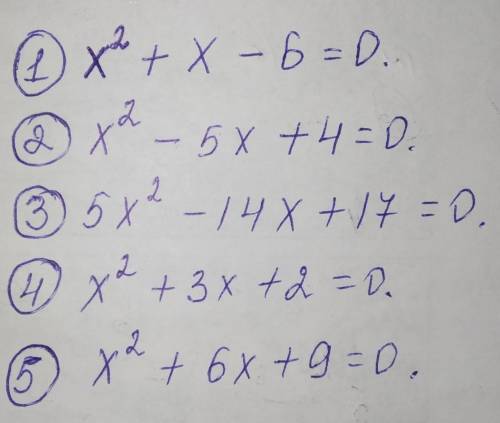 ① x² + x - 6 = 0.
② x² - 5x + 4 = 0.
③ 5x² - 14x + 17 = 0.
④ x² + 3x + 2 = 0.
⑤ x² + 6x + 9 = 0.